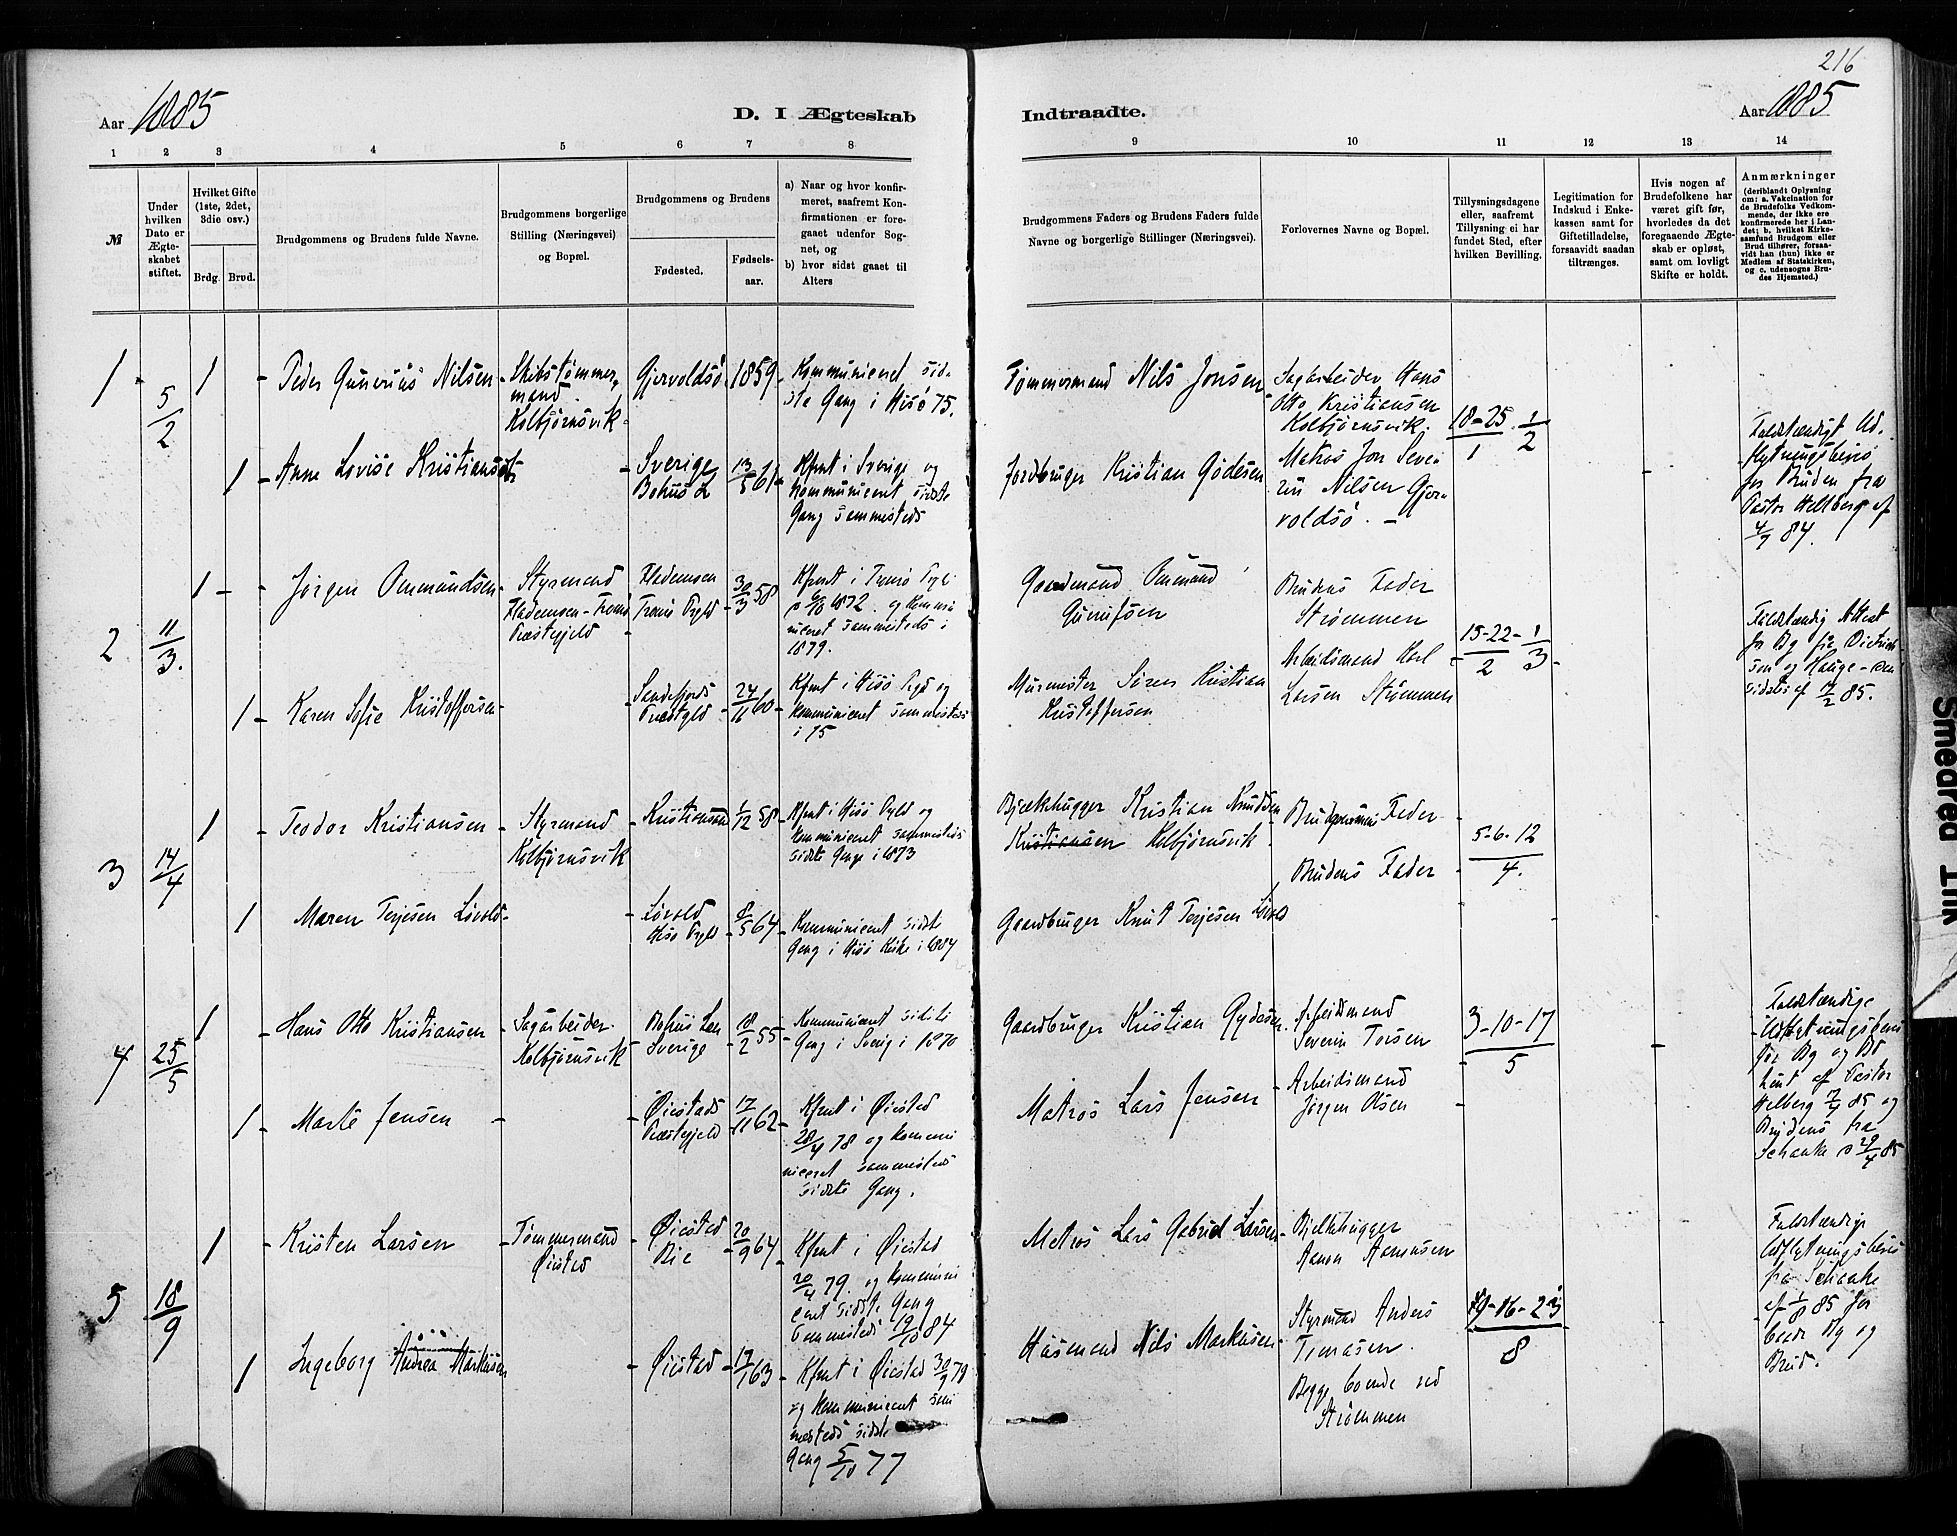 216
Aar 1885
D. I Ægteskab
Indtraadte.
Aar 1885
1 2 3 4 5 6 7 8 9 10 11 12 13 14
№
Under hvilken Dato er Ægteskabet stiftet.
Hvilket Gifte (1ste, 2det, 3die osv.)
Brdg. Brud.
Brudgommens og Brudens fulde Navne.
Brudgommens borgerlige Stilling (Næringsvei) og Bopæl.
Brudgommens og Brudens
Fødested.
Fødselsaar.
a) Naar og hvor konfirmeret, saafremt Konfirmationen er foregaaet udenfor Sognet, og
b) hvor sidst gaaet til Alters
Brudgommens Faders og Brudens Faders fulde Navne og borgerlige Stillinger (Næringsvei).
Forlovernes Navne og Bopæl.
Tillysningsdagene eller, saafremt Tillysning ei har fundet Sted, efter hvilken Bevilling.
Legitimation for Indskud i Enkekassen samt for Giftetilladelse, forsaavidt saadan tiltrænges.
Hvis nogen af Brudefolkene har været gift før, hvorledes da det foregaaende Ægteskab er opløst, samt om lovligt Skifte er holdt.
Anmærkninger (deriblandt Oplysning om: a. Vakcination for de Brudefolks Vedkommende, der ikke ere konfirmerede her i Landet; b. hvilket Kirkesamfund Brudgom eller Brud tilhører, forsaavidt han (hun) ikke er Medlem af Statskirken, og c. udensogns Brudes Hjemsted.)
1
5/2
1
Peder Gunerius Nilsen
Skibstømmermand. Kolbjørnsvik
Gjervoldsø
1859
Kommuniceret sidste Gang i Hisø 75.
Tømmermand Nils Jonsen
Sagarbeider Hans Otto Kristiansen Kolbjørnsvik.
18-25/1 1/2
1
Anne Lovise Kristiansen
Sverige Bohus L
13/5 61
Kfmt i Sverige og kommuniceret sidste Gang sammesteds
Jordbruger Kristian Gødesen
Matros Jon Severin Nilsen Gjervoldsø.
Fuldstændigt Udflytningsbevis for Bruden fra Pastor Hellberg af 4/7 84.
2
11/3.
1
Jørgen Ommundsen
Styrmand Flademoen - Tromø Præstegjeld
Fladensen Tromø Pgld
30/3 58
Kfmt i Tromø Pgld 6/10 1872. og kommuniceret sammesteds i 1879.
Gaardmand Ommund
Brudens Fader Strømmen
15-22/2 - 1/3
Fuldstændig Attest
1
Karen Sofie Kristoffersen
Sandefjords Præstgld
24/11 60
Kfmt i Hisø Pgld og kommuniceret sammesteds i 75
Murmester Søren Kristian Kristoffersen
Arbeidsmand Karl Larsen Strømmen
sidste af 14/2 85.
3
14/4
1
Teodor Kristiansen
Styrmand Kolbjørnsvik
Kristiansand
1/12 58
Kfmt i Hisø Pgld og kommuniceret sammesteds sidste Gang i 1873
Bjælkhugger Kristian Knudsen Kristiansen Kolbjørnsvik
Brudgommens Fader
5-6-12/4.
1
Maren Terjesen Løvold
Løvold Hisø Pgld
8/5 64
Kommuniceret sidste Gang i Hisø Kirke i 1884
Gaardbruger Knut Terjesen Løvold
Brudens Fader
4
25/5
1
Hans Otto Kristiansen
Sagarbeider. Kolbjørnsvik
Bohus Len Sverige
18/2 55
Kommuniceret sidste Gang i Sverig i 1870
Gaardbruger Kristian Gydesen
Arbeidsmand Severin Torsen
3-10-17/5
1
Marte Jensen
Øiestads Præstegjeld
17/11 62
Kfmt i Øiested 28/4 78 og kommuniceret sammesteds sidste Gang.
Matros Lars Jensen
Arbeidsmand Jørgen Olsen
Fuldstændige Udflytningsbevis for Bg og Bd
5
18/9
1
Kristen Larsen
Tømmermand Øiested
Øiested Bie
20/9 64
Kfmt i Øiestad 20/4 79. og kommuniceret sidste Gang sammesteds 19/10 84
Matros Lars Gabriel Larsen
Bjelkhugger Aanon Aanensen
9-16-23/8
1
Ingeborg Andrea Markusen
Øiestad
17/1 63
Kfmt i Øiestad 30/9 78 og kommuniceret sammesteds sidste Gang 5/10 77
Husmand Nils Markusen
Styrmand Anders Tomasen. Begge boende ved Strømmen
Fuldstændige Udflytningsbevis fra Schanke af 1/8 85 for baade Bg og Brud.
Smeared Ink